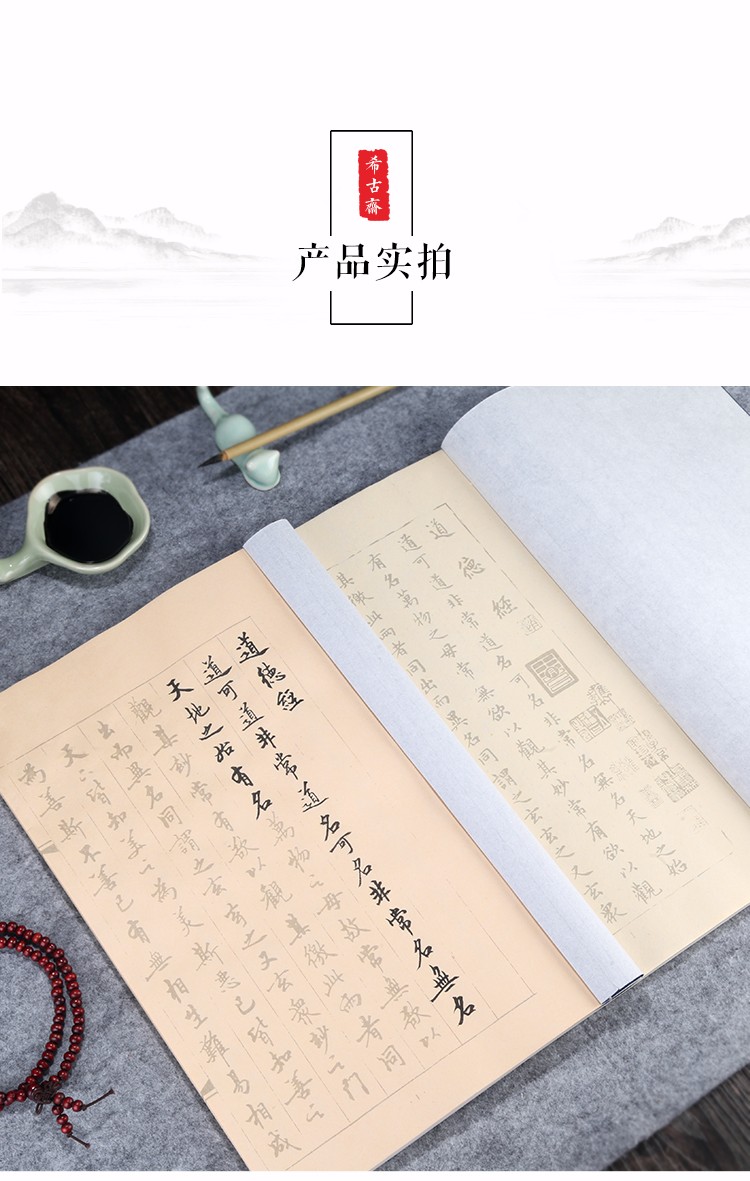 希古齋
产品实拍
道德經
道可道非常道名可名非常名無名天地之始
有名萬物之母常無欲以觀其妙常有欲以觀
其徼此兩者同出而異名同謂之玄玄之又玄衆
道德經
道可道非常道名可名非常名無名
天地之始有名萬物之母故常無欲以
觀其妙常有欲以觀其徼此兩者同
出而異名同謂之玄玄之又玄衆妙之門
天下皆知美之為美斯惡已皆知善之
為善斯不善已有無相生難易相成